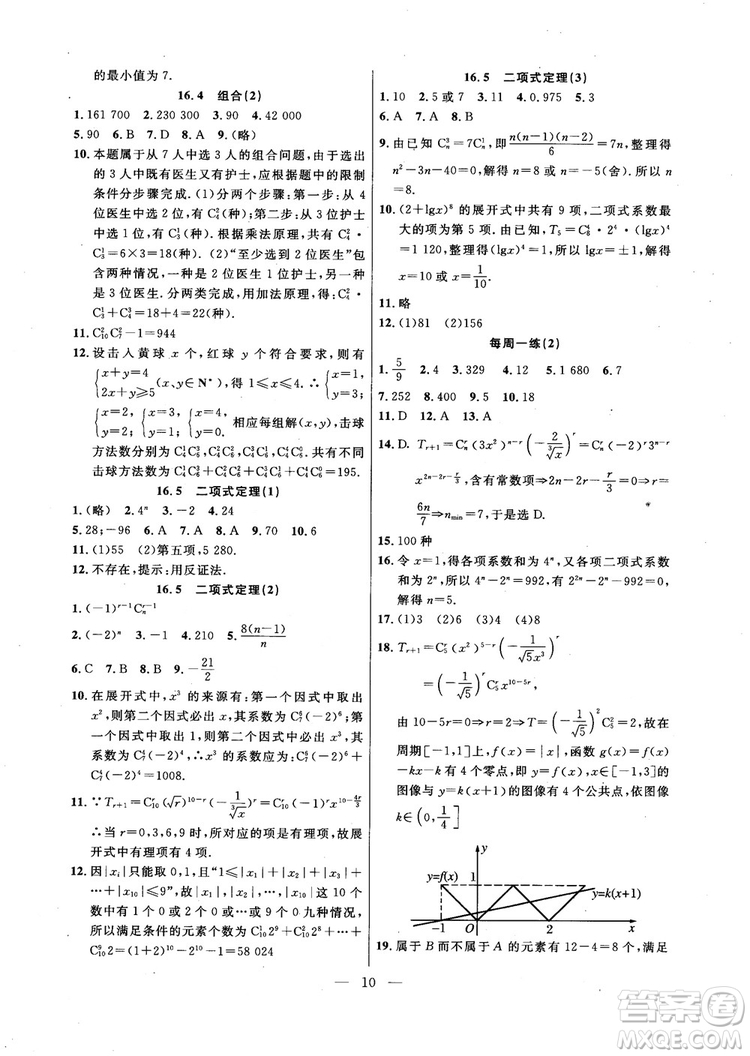 的最小值为 7.
16.4 组合(2)
1. 161 700 2. 230 300 3. 90 4. 42 000
5. 90 6. B 7. D 8. A 9. (略)
10. 本题属于从 7 人中选 3 人的组合问题,由于选出
的 3 人中既有医生又有护士,应根据题中的限制
条件分步骤完成. (1)分两个步骤:第一步:从 4
位医生中选 2 位,有 C₄²(种),第二步:从 3 位护士
中选 1 位,有 C₃¹(种),根据乘法原理,共有 C₄²·
C₃¹=6×3=18(种). (2)“至少选到 2 位医生”包
含两种情况,一种是 2 位医生 1 位护士,另一种是
3 位医生. 分两类完成,用加法原理,得:C₄²·
C₃¹+C₄³=18+4=22(种).
11. C₁₀³C₇²-1=944
12. 设击入黄球 x 个,红球 y 个符合要求,则有
{x+y=4, 2x+y≥5 (x、y∈N*),得 1≤x≤4. ∴{x=1, y=3;
{x=2, y=2; {x=3, y=1; {x=4, y=0. 相应每组解(x,y),击球
方法数分别为 C₄¹C₆³,C₄²C₆²,C₄³C₆¹,C₄⁴C₆⁰. 共有不同
击球方法数为 C₄¹C₆³+C₄²C₆²+C₄³C₆¹+C₄⁴C₆⁰=195.
16.5 二项式定理(1)
1. (略) 2. 4ⁿ 3. -2 4. 24
5. 28;-96 6. C 7. C 8. A 9. 30 10. 6
11. (1)55 (2)第五项,5 280.
12. 不存在,提示:用反证法.
16.5 二项式定理(2)
1. (-1)ʳ⁻¹Cₙʳ⁻¹
2. (-2)ⁿ 3. -1 4. 210 5. 8(n-1)/n
6. C 7. B 8. A 9. -21/2
10. 在展开式中,x³ 的来源有:第一个因式中取出
x²,则第二个因式必出 x,其系数为 C₇⁶(-2)⁶;
第一个因式中取出 1,则第二个因式中必出 x³,其
系数为 C₇⁴(-2)⁴ ∴x³ 的系数应为:C₇⁶(-2)⁶+
C₇⁴(-2)⁴=1008.
11. ∵Tᵣ₊₁=C₁₀ʳ(√r)¹⁰⁻ʳ(-1/∛x)ʳ=C₁₀ʳ(-1/2)ʳx^(10-4r/3)
∴当 r=0,3,6,9 时,所对应的项是有理项,故展
开式中有理项有 4 项.
12. 因|xᵢ|=0或1,且“1≤|x₁|+|x₂|+|x₃|+
…+|x₁₀|≤9”,则|x₁|+|x₂|+…+|x₁₀|这 10 个
数中有 1 个 0,2 个 0…或 9 个 0 九种情况,
所以满足条件的元素个数为 C₁₀¹2⁹+C₁₀²2⁸+…+
C₁₀⁹2¹=(1+2)¹⁰-2¹⁰-1=58 024
16.5 二项式定理(3)
1. 10 2. 5 或 7 3. 11 4. 0.975 5. 3
6. A 7. A 8. B
9. 由已知 Cₙ³=7Cₙ¹,即 n(n-1)(n-2)/6=7n,整理得
n²-3n-40=0,解得 n=8 或 n=-5(舍). 所以 n
=8.
10. (2+lgx)⁸ 的展开式中共有 9 项,二项式系数最
大的项为第 5 项. 由已知,T₅=C₈⁴·2⁴·(lgx)⁴
=1 120,整理得(lgx)⁴=1. 所以 lgx=±1,即 x
=10,或 x=1/10.
11. 略
12. (1)81 (2)156
每周一练(2)
1. 5/9 2. 4 3. 329 4. 12 5. 1 680 6. 7
7. 252 8. 400 9. 5 10. 18
11. D 12. A 13. A
14. D. Tᵣ₊₁=Cₙʳ(3x²)ⁿ⁻ʳ(-2/∛x)ʳ=Cₙʳ(-2)ʳ3ⁿ⁻ʳ
x^(2n-2r-r/3),因为含有常数项⇒2n-2r-r/3=0⇒r=
6n/7⇒nₘᵢₙ=7,于是选 D.
15. 100 种
16. 令 x=1,得各项系数和为 4ⁿ,又各二项式系数
和为 2ⁿ,所以 4ⁿ-2ⁿ=992,有 2ⁿ=32 或-31(舍).
解得 n=5.
17. (1)3 (2)3 (3)6 (4)8
18. Tᵣ₊₁=C₅ʳ(x²)⁵⁻ʳ(-1/(√5x³))ʳ
=(-1/√5)ʳC₅ʳx¹⁰⁻⁵ʳ,
由 10-5r=0⇒r=2⇒T=C₅²(1/√5)²=2,所以在
周期[-1,1]上,f(x)=|x|,函数 g(x)=f(x)-
kx-k 有 4 个零点,即在区间[-1,3]内,f(x)的
图像与 y=k(x+1)的图像有 4 个公共点,依图像
k∈(0,1/4]
y=f(x) 1 y y=k(x+1)
-1 O 2 x
19. 属于 B 而不属于 A 的元素有 12-4=8 个,满足
— 10 —
答案圈
MXQE.COM